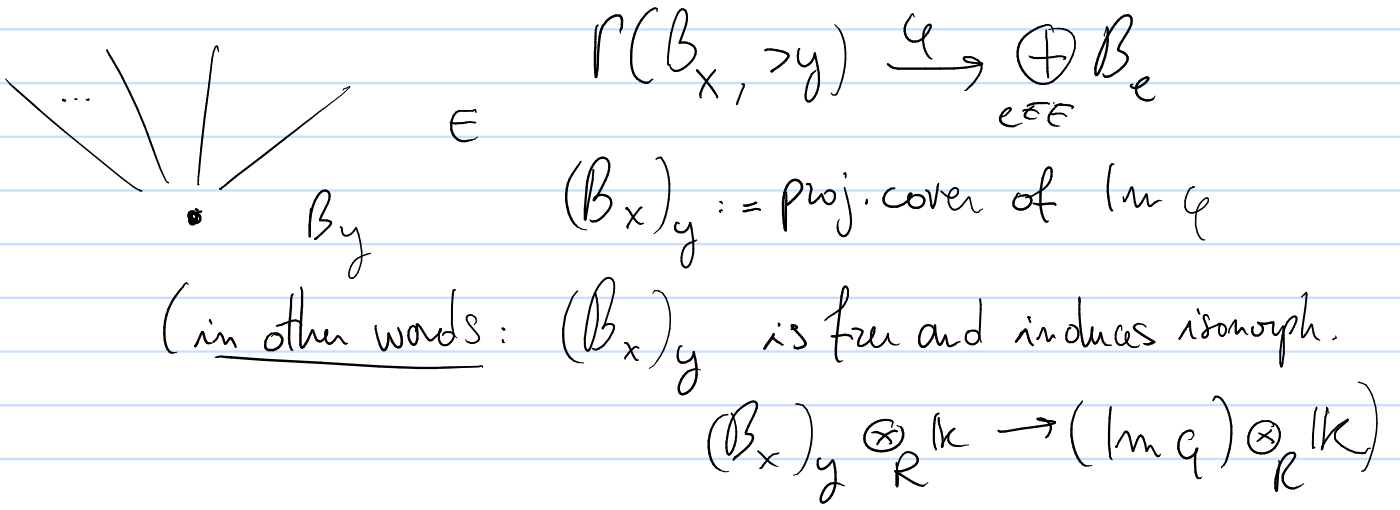 Γ(B_x, >y) →^φ ⊕_{e∈E} B_e
... E
(B_x)_y := proj. cover of Im φ
B_y
(in other words: (B_x)_y is free and induces isomorph.
(B_x)_y ⊗_R 𝕜 → (Im φ) ⊗_R 𝕜)